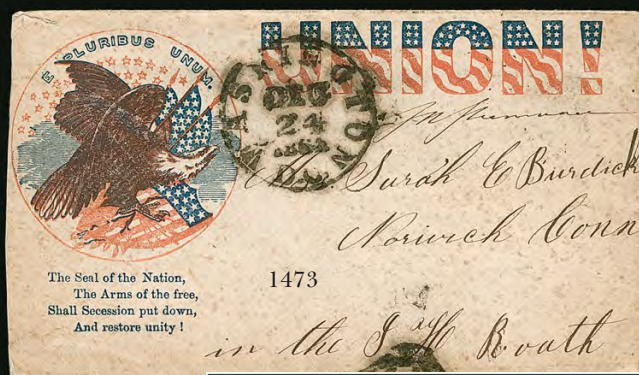 UNION!
E PLURIBUS UNUM.
WASHINGTON D.C.
DEC
24
Sarah E Burdick
Norwich Conn
The Seal of the Nation,
The Arms of the free,
Shall Secession put down,
And restore unity!
1473
in the